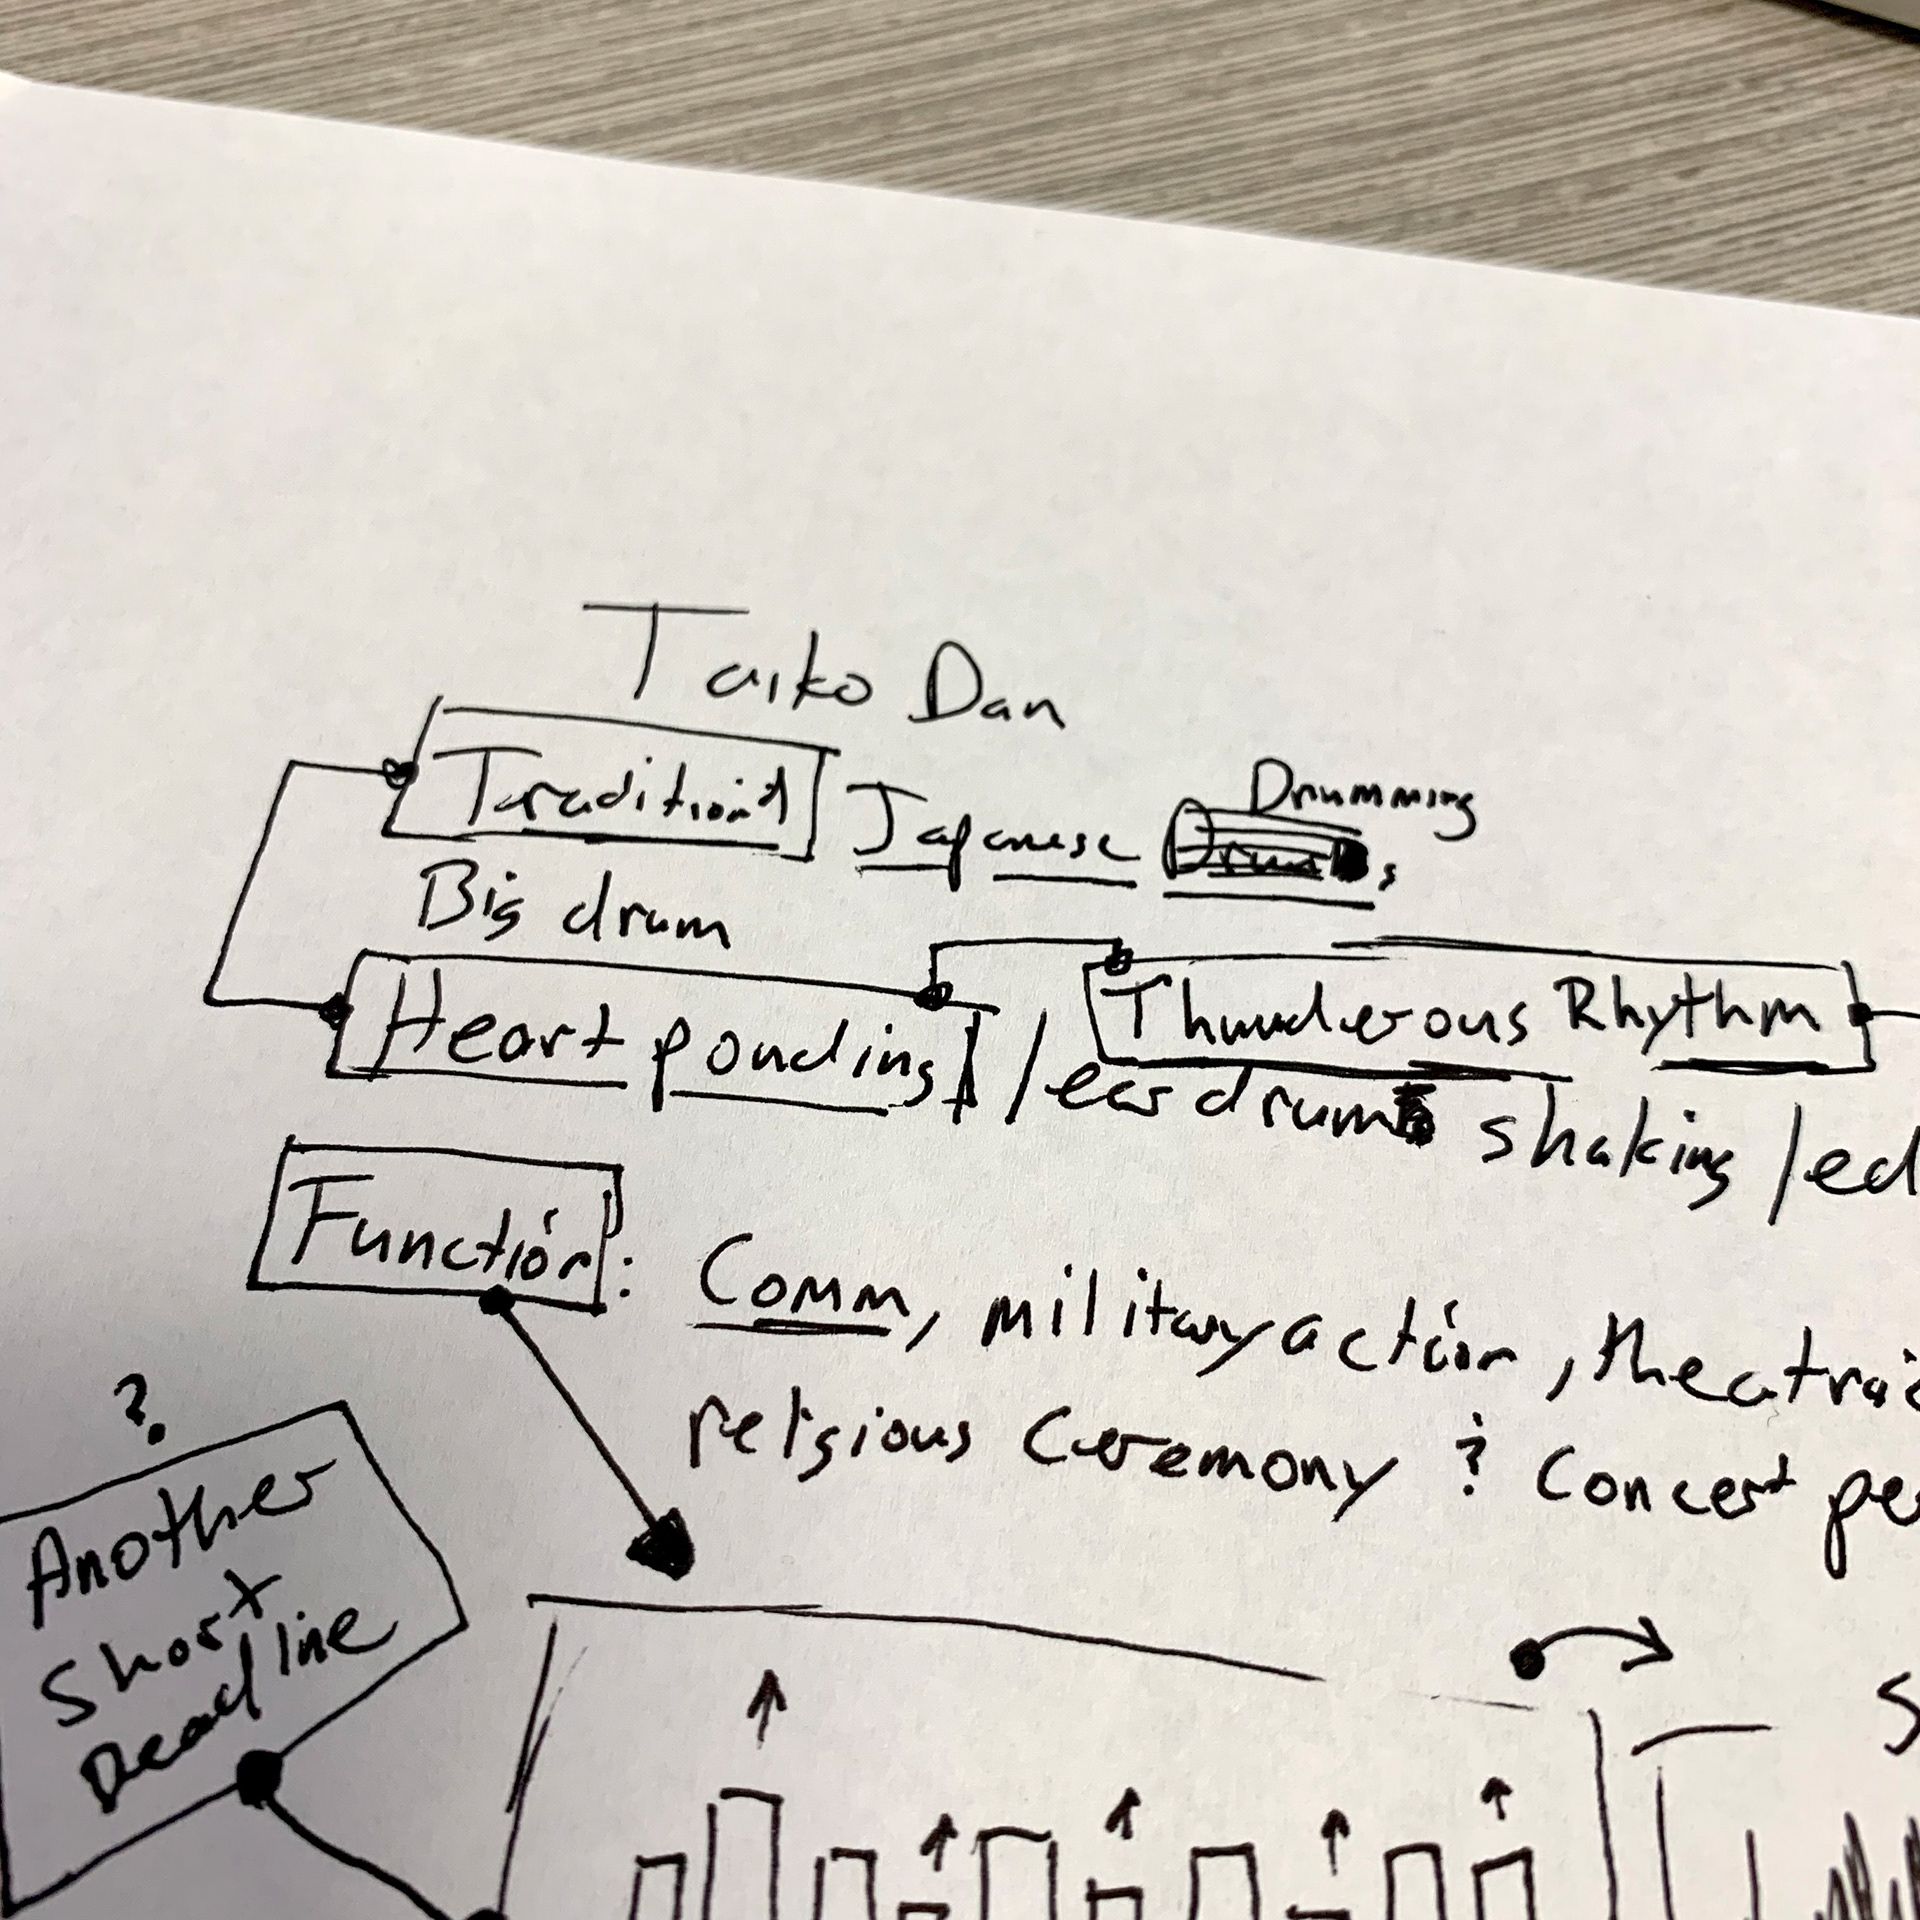 Taiko Dan
Traditional Japanese Drumming
Big drum
Heart ponding / ear drum shaking / ed
Thunderous Rhythm
Function: Comm, military action, theatric
religious Ceremony ? Concert pe
?
Another
Short
Deadline
S